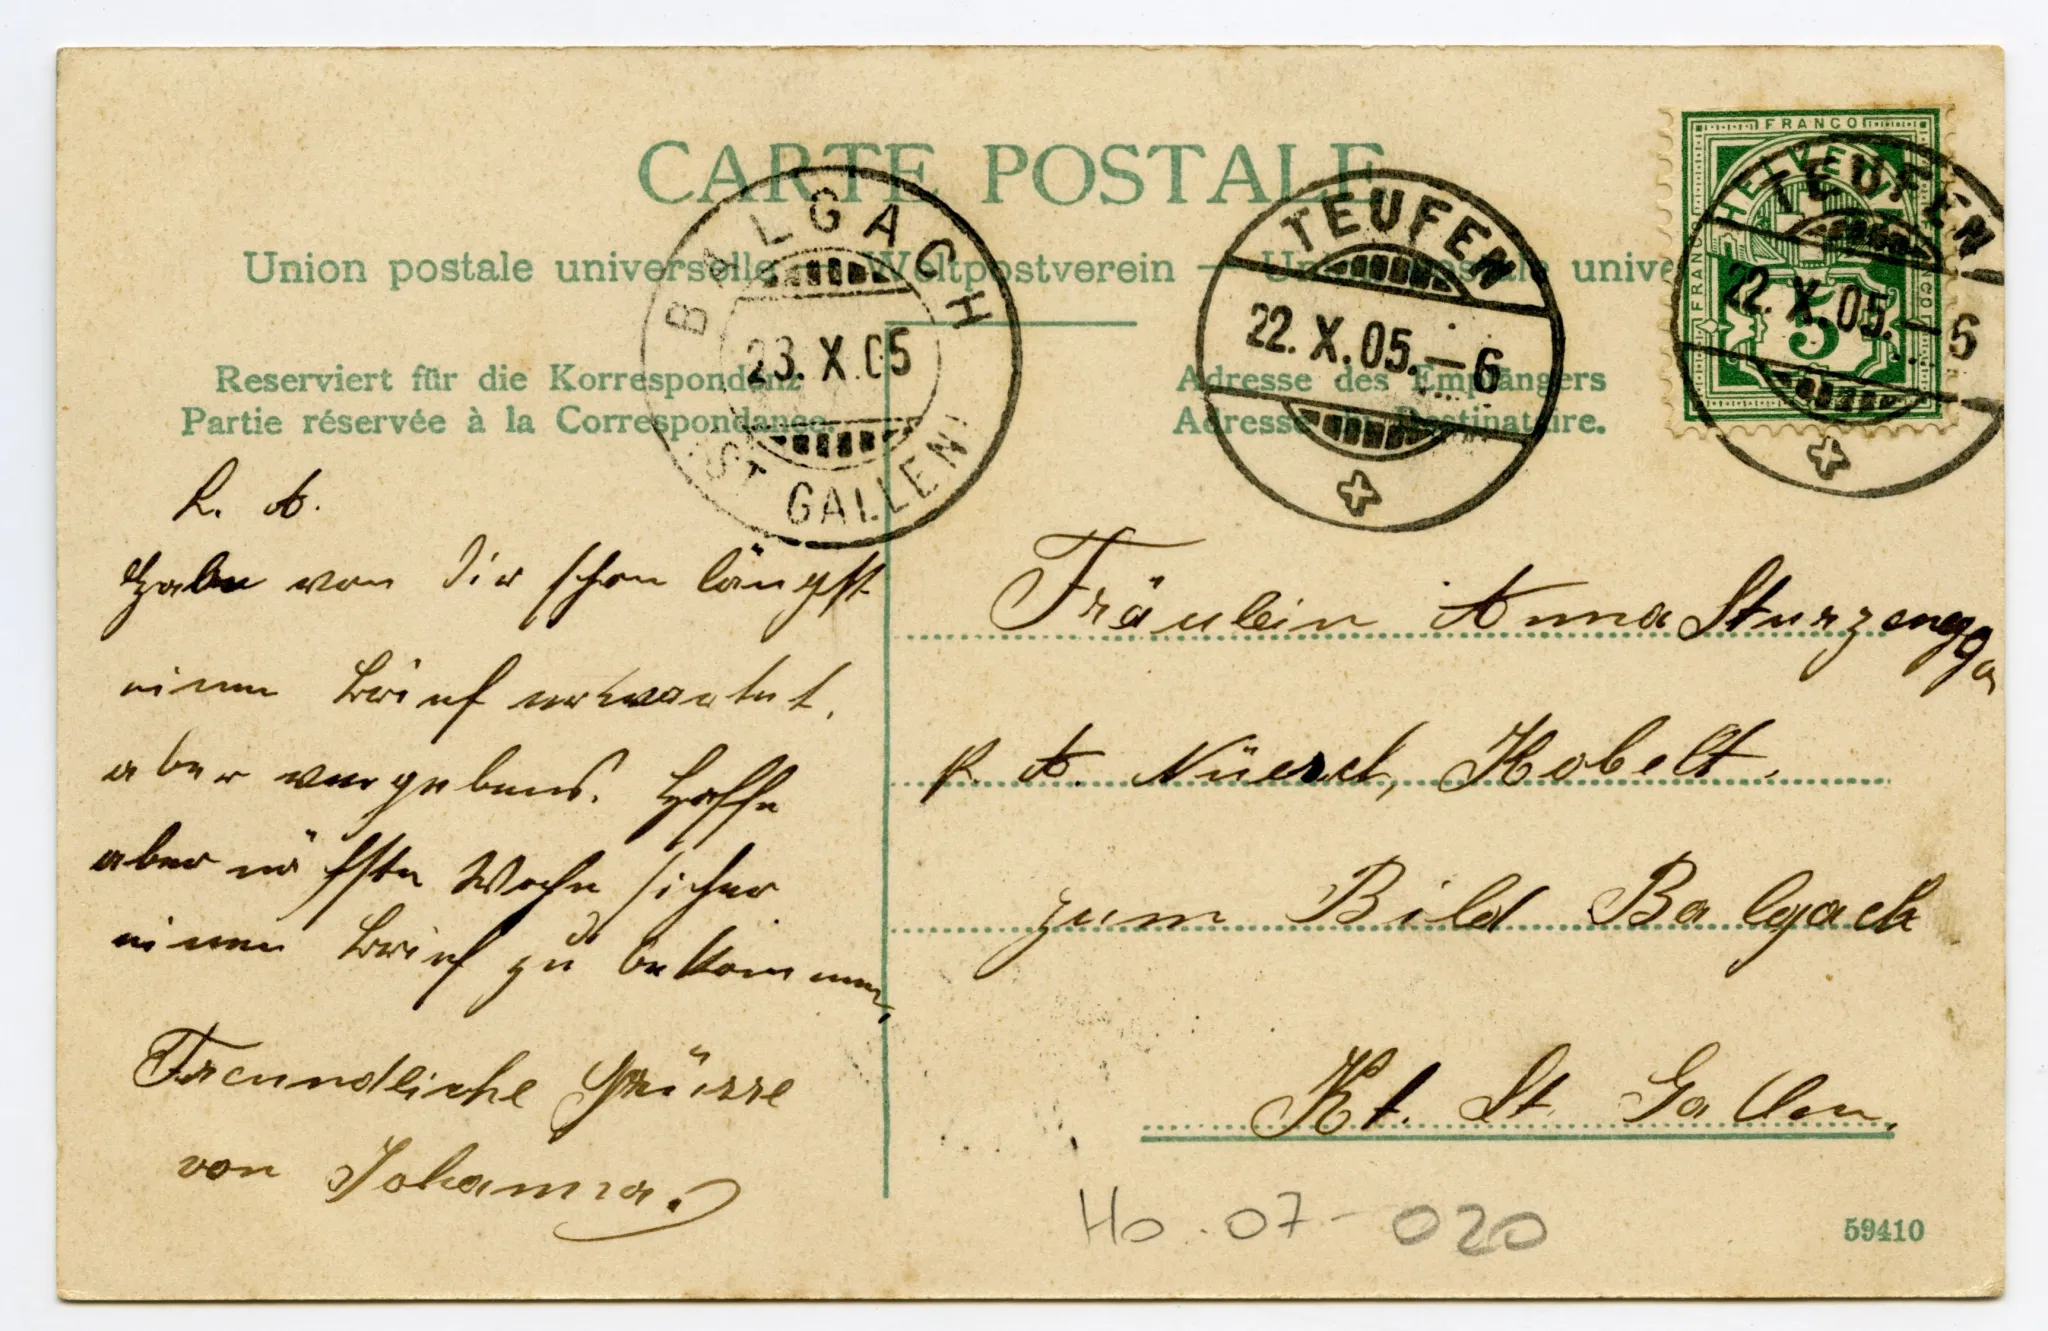 CARTE POSTALE
Union postale universelle. — Weltpostverein — Union postale unive
BALGACH
23. X. 05
(ST. GALLEN)
TEUFEN
22. X. 05. – 6
FRANCO
HELVETIA
FRANCO
FRANCO
5
TEUFEN
22. X. 05. – 6
Reserviert für die Korrespondenz
Partie réservée à la Correspondance.
Adresse des Empfängers
Adresse du Destinataire.
L. A.
Habe von Dir schon längst
einen Brief erwartet,
aber vergebens. Hoffe
aber nächste Woche sicher
einen Brief zu bekommen,
Freundliche Grüsse
von Johanna.
Fräulein Anna Sturzenegga
p. A. Nüesch, Kobelt.
zum Bild Balgach
Kt. St. Gallen.
Ho. 07-020
59410